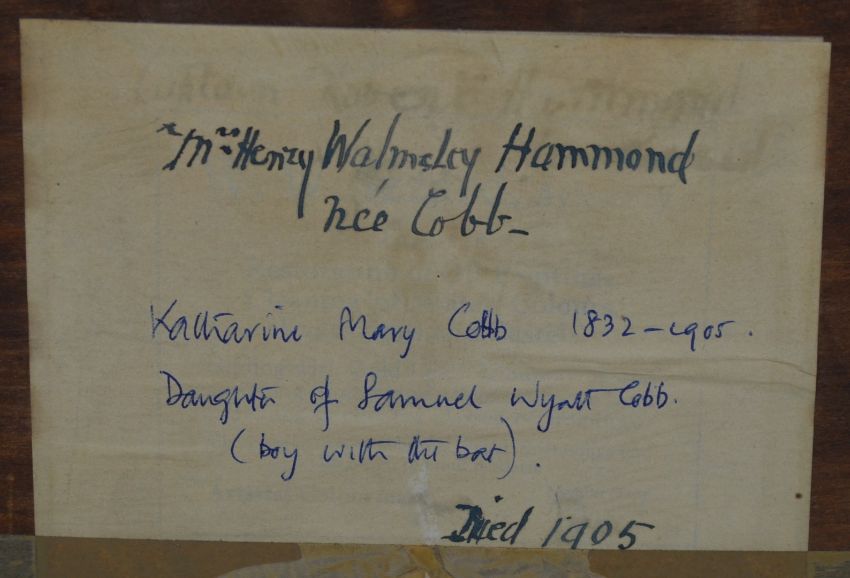 Mrs Henry Walmsley Hammond
née Cobb-
Katharine Mary Cobb 1832-1905.
Daughter of Samuel Wyatt Cobb.
(boy with the bat).
Died 1905